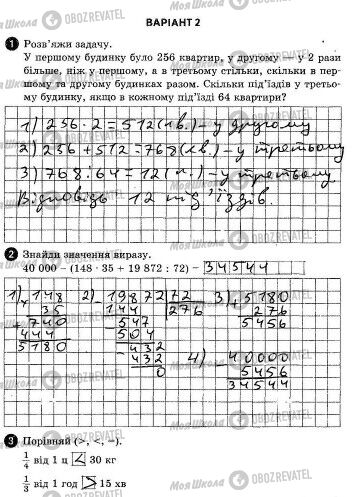 ВАРІАНТ 2
1 Розв'яжи задачу.
У першому будинку було 256 квартир, у другому — у 2 рази
більше, ніж у першому, а в третьому стільки, скільки в пер-
шому та другому будинках разом. Скільки під'їздів у третьо-
му будинку, якщо в кожному під'їзді 64 квартири?
1) 256 · 2 = 512 (кв.) – у другому
2) 256 + 512 = 768 (кв.) – у третьому
3) 768 : 64 = 12 (п.) – у третьому
Відповідь 12 під'їздів.
2 Знайди значення виразу.
40 000 – (148 · 35 + 19 872 : 72) = 34544
1) × 148
35
+ 740
444
5180
2) 19872 72
144 276
547
504
432
432
0
3) + 5180
276
5456
4) – 40000
5456
34544
3 Порівняй (>, <, =).
1/4 від 1 ц < 30 кг
1/3 від 1 год > 15 хв
МояШкола OBOZREVATEL